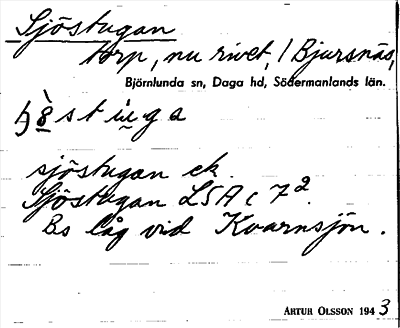 Sjöstugan
torp, nu rivet, / Bjursnäs,
Björnlunda sn, Daga hd, Södermanlands län.
s t u g a
sjöstugan ek.
Sjöstugan LSA c 7².
Bs låg vid Kvarnsjön.
ARTUR OLSSON 1943